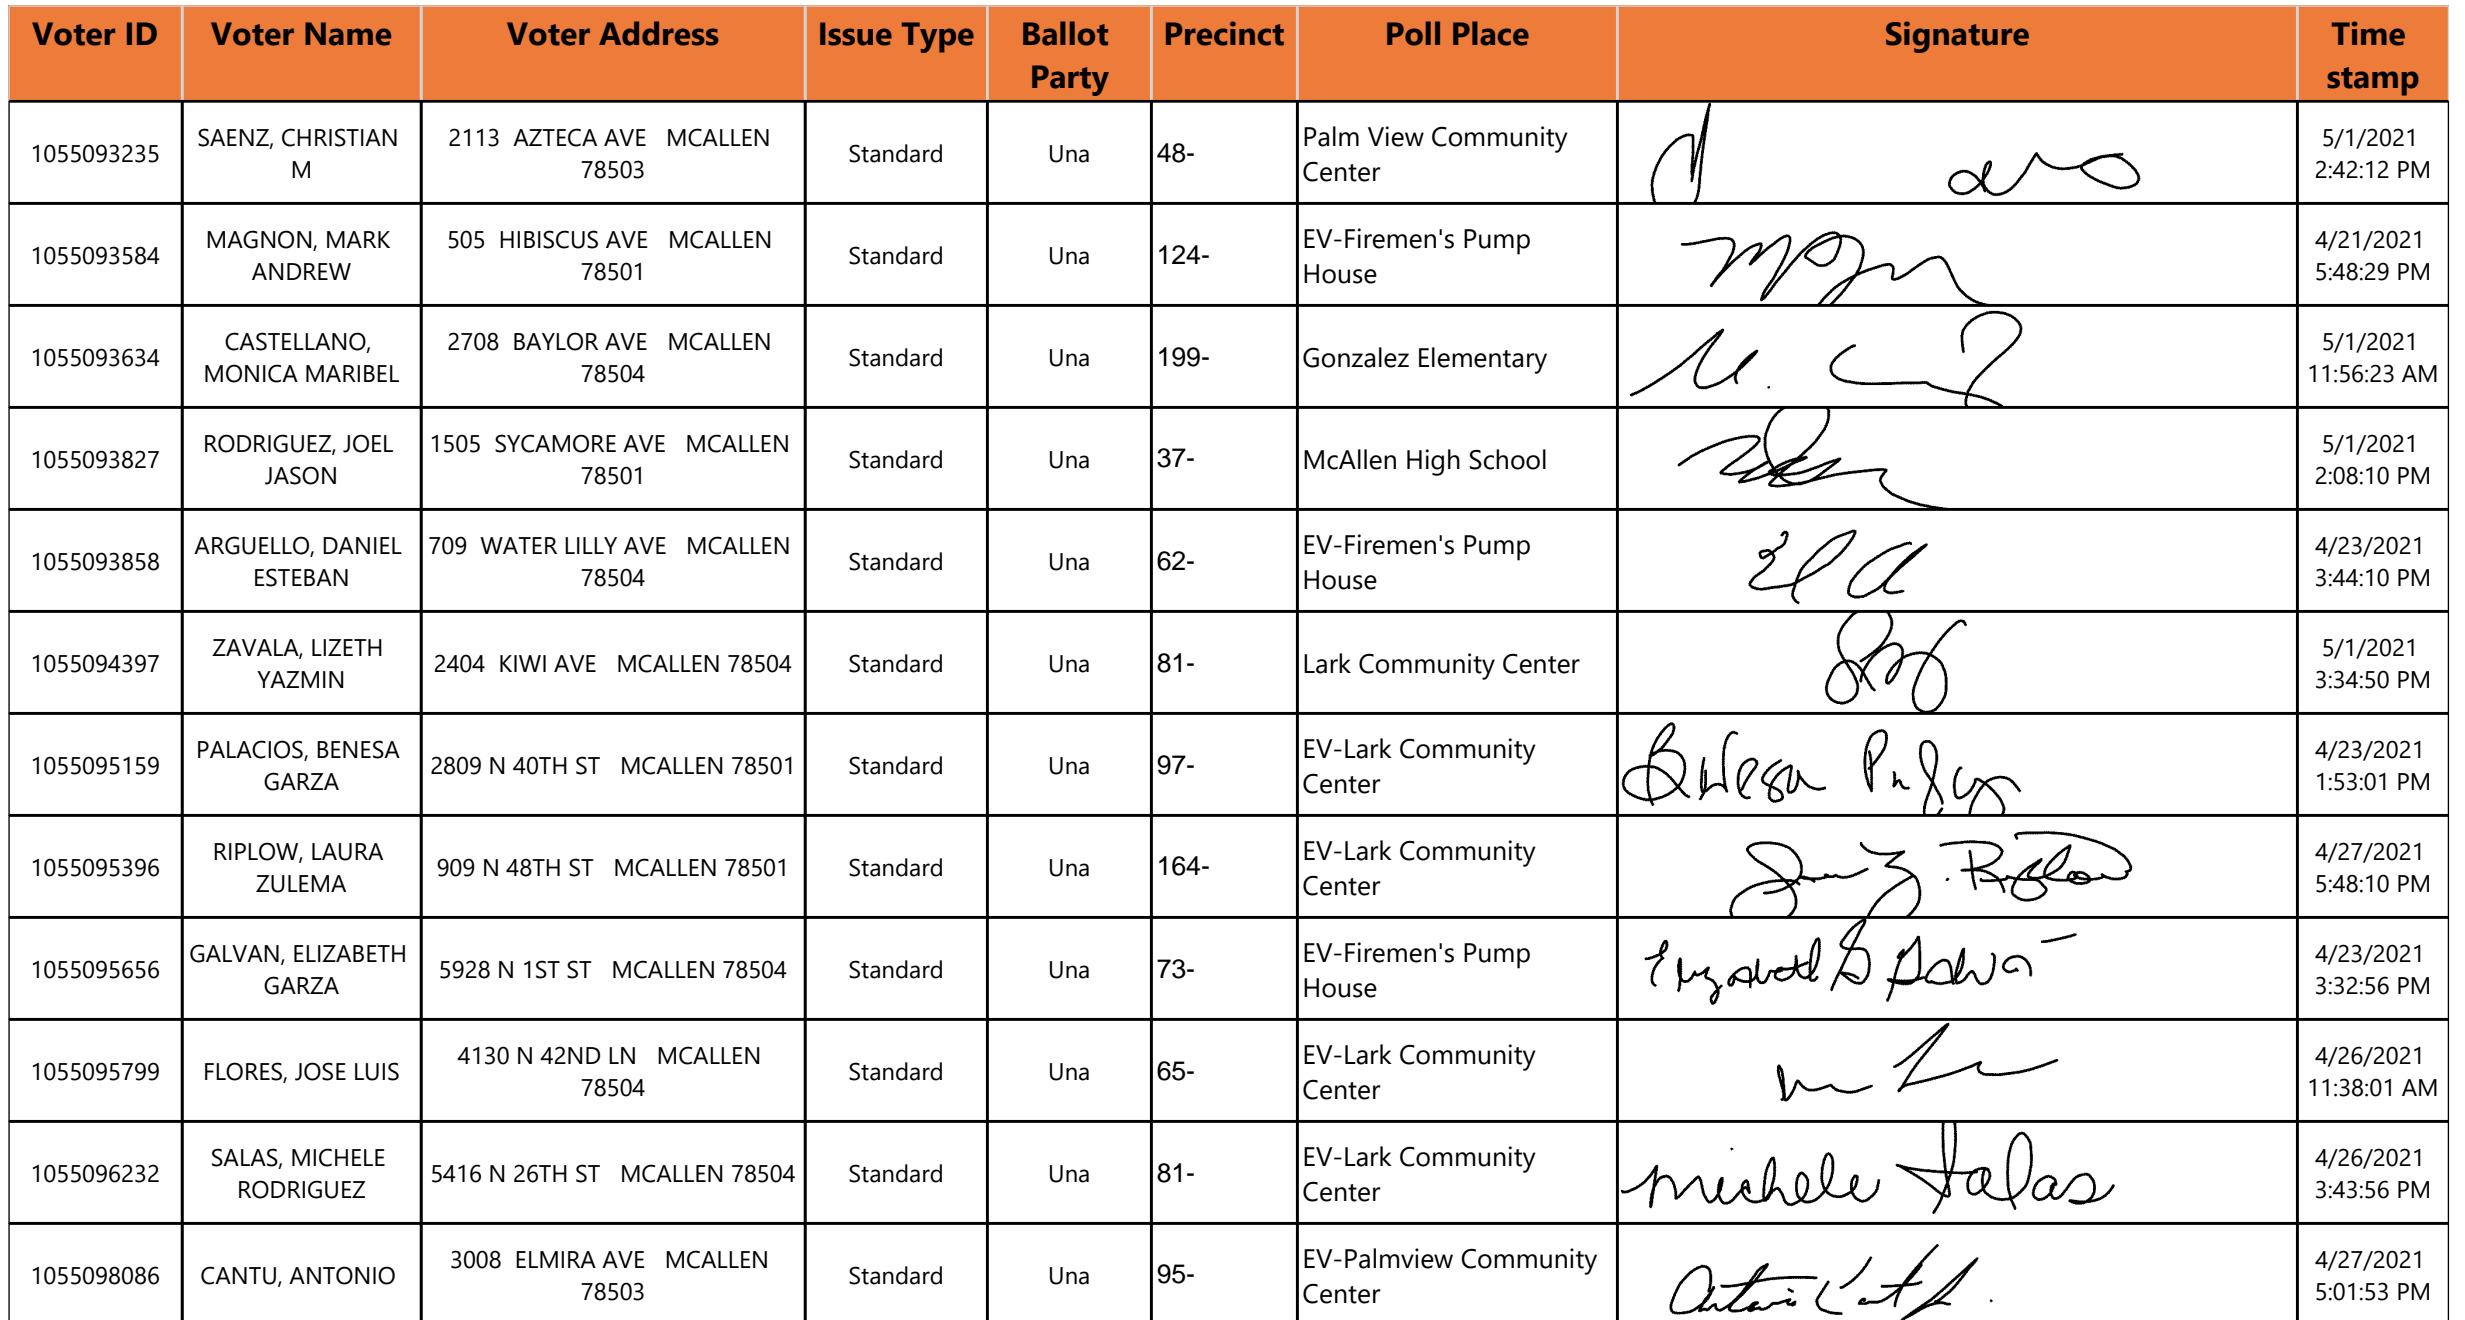 Voter ID Voter Name Voter Address Issue Type Ballot Party Precinct Poll Place Signature Time stamp
1055093235 SAENZ, CHRISTIAN M 2113 AZTECA AVE MCALLEN 78503 Standard Una 48- Palm View Community Center 5/1/2021 2:42:12 PM
1055093584 MAGNON, MARK ANDREW 505 HIBISCUS AVE MCALLEN 78501 Standard Una 124- EV-Firemen's Pump House 4/21/2021 5:48:29 PM
1055093634 CASTELLANO, MONICA MARIBEL 2708 BAYLOR AVE MCALLEN 78504 Standard Una 199- Gonzalez Elementary 5/1/2021 11:56:23 AM
1055093827 RODRIGUEZ, JOEL JASON 1505 SYCAMORE AVE MCALLEN 78501 Standard Una 37- McAllen High School 5/1/2021 2:08:10 PM
1055093858 ARGUELLO, DANIEL ESTEBAN 709 WATER LILLY AVE MCALLEN 78504 Standard Una 62- EV-Firemen's Pump House 4/23/2021 3:44:10 PM
1055094397 ZAVALA, LIZETH YAZMIN 2404 KIWI AVE MCALLEN 78504 Standard Una 81- Lark Community Center 5/1/2021 3:34:50 PM
1055095159 PALACIOS, BENESA GARZA 2809 N 40TH ST MCALLEN 78501 Standard Una 97- EV-Lark Community Center 4/23/2021 1:53:01 PM
1055095396 RIPLOW, LAURA ZULEMA 909 N 48TH ST MCALLEN 78501 Standard Una 164- EV-Lark Community Center 4/27/2021 5:48:10 PM
1055095656 GALVAN, ELIZABETH GARZA 5928 N 1ST ST MCALLEN 78504 Standard Una 73- EV-Firemen's Pump House 4/23/2021 3:32:56 PM
1055095799 FLORES, JOSE LUIS 4130 N 42ND LN MCALLEN 78504 Standard Una 65- EV-Lark Community Center 4/26/2021 11:38:01 AM
1055096232 SALAS, MICHELE RODRIGUEZ 5416 N 26TH ST MCALLEN 78504 Standard Una 81- EV-Lark Community Center Michele Salas 4/26/2021 3:43:56 PM
1055098086 CANTU, ANTONIO 3008 ELMIRA AVE MCALLEN 78503 Standard Una 95- EV-Palmview Community Center 4/27/2021 5:01:53 PM